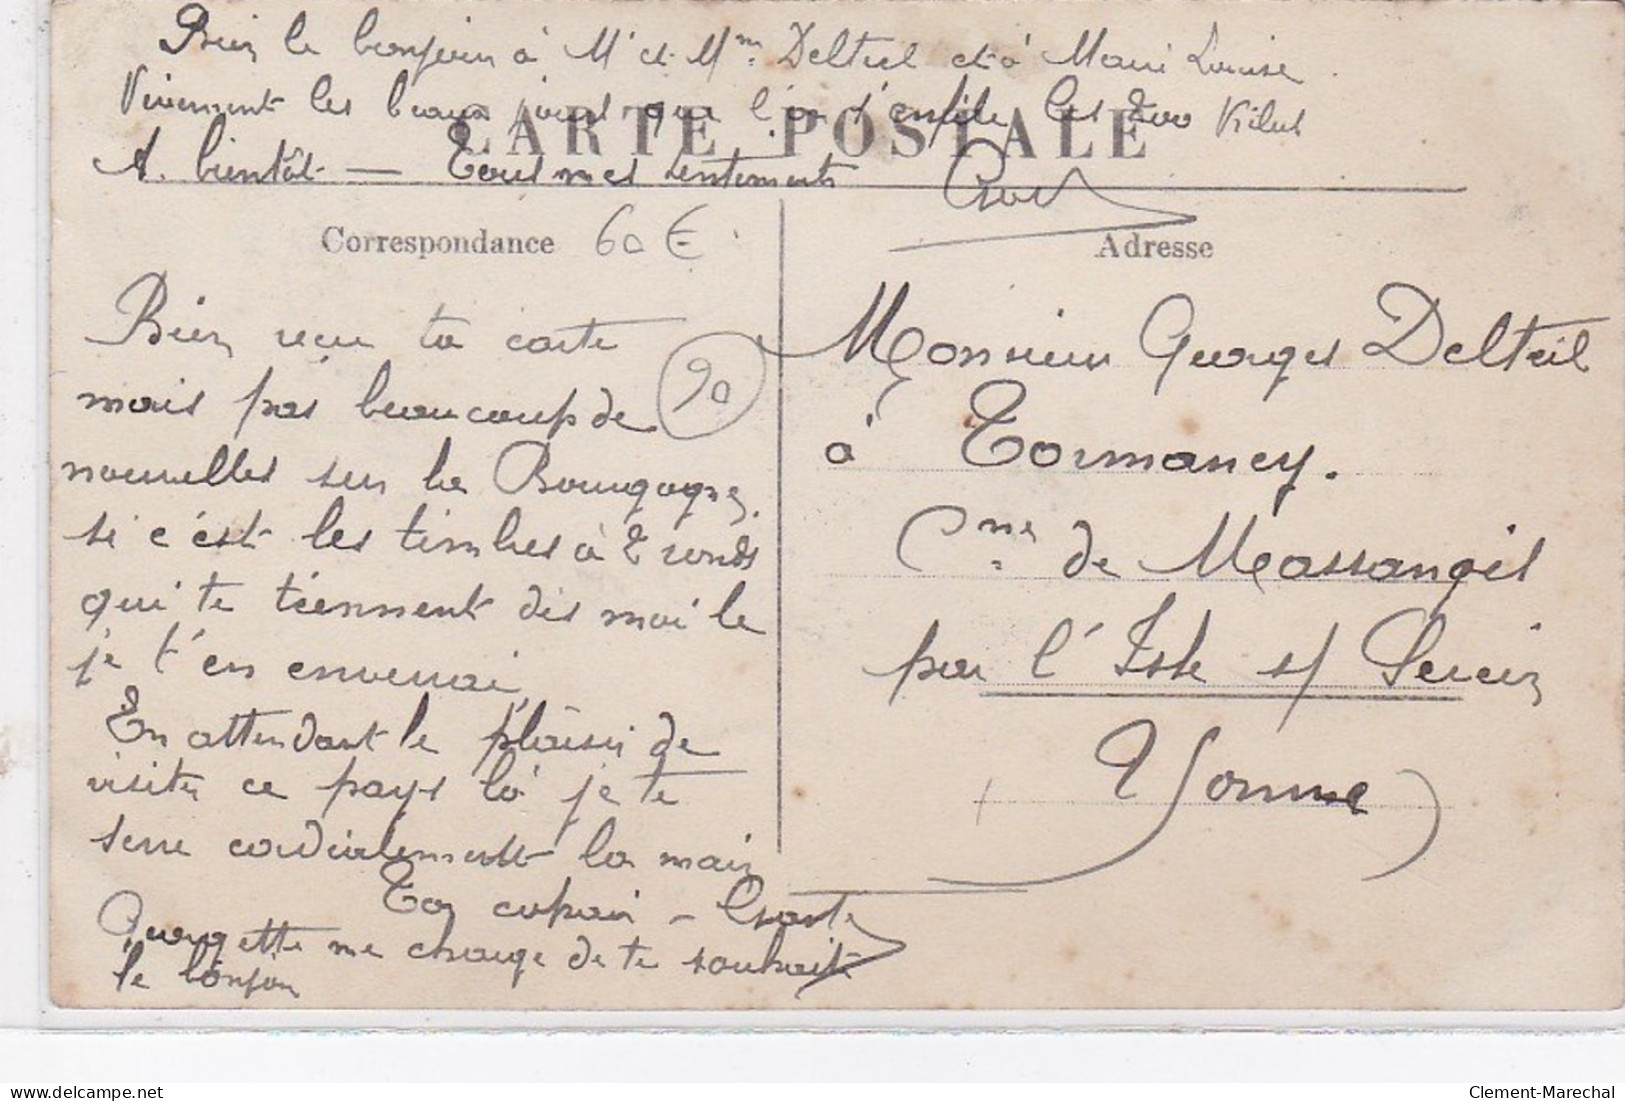 Bien le bonjour à Mr et Mme Delteil et à Marie Louise.
Vivement les beaux jours que l'on s'enfile les 200 Kilos
A. bientôt — Tous mes sentiments
CARTE POSTALE
Correspondance 60 €
Adresse
90
Bien reçu ta carte
mais pas beaucoup de
nouvelles sur la Bourgogne,
si c'est les timbres à 2 ronds
qui te tiennent dis moi le
je t'en enverrai,
En attendant le plaisir de
visiter ce pays là je te
serre cordialement la main
Ton copain –
Georgette me charge de te souhaiter
le bonjour
Monsieur Georges Delteil
à Tormancy.
Cne de Massangis
par l'Isle s/ Serein
Yonne
delcampe.net
Clement-Marechal